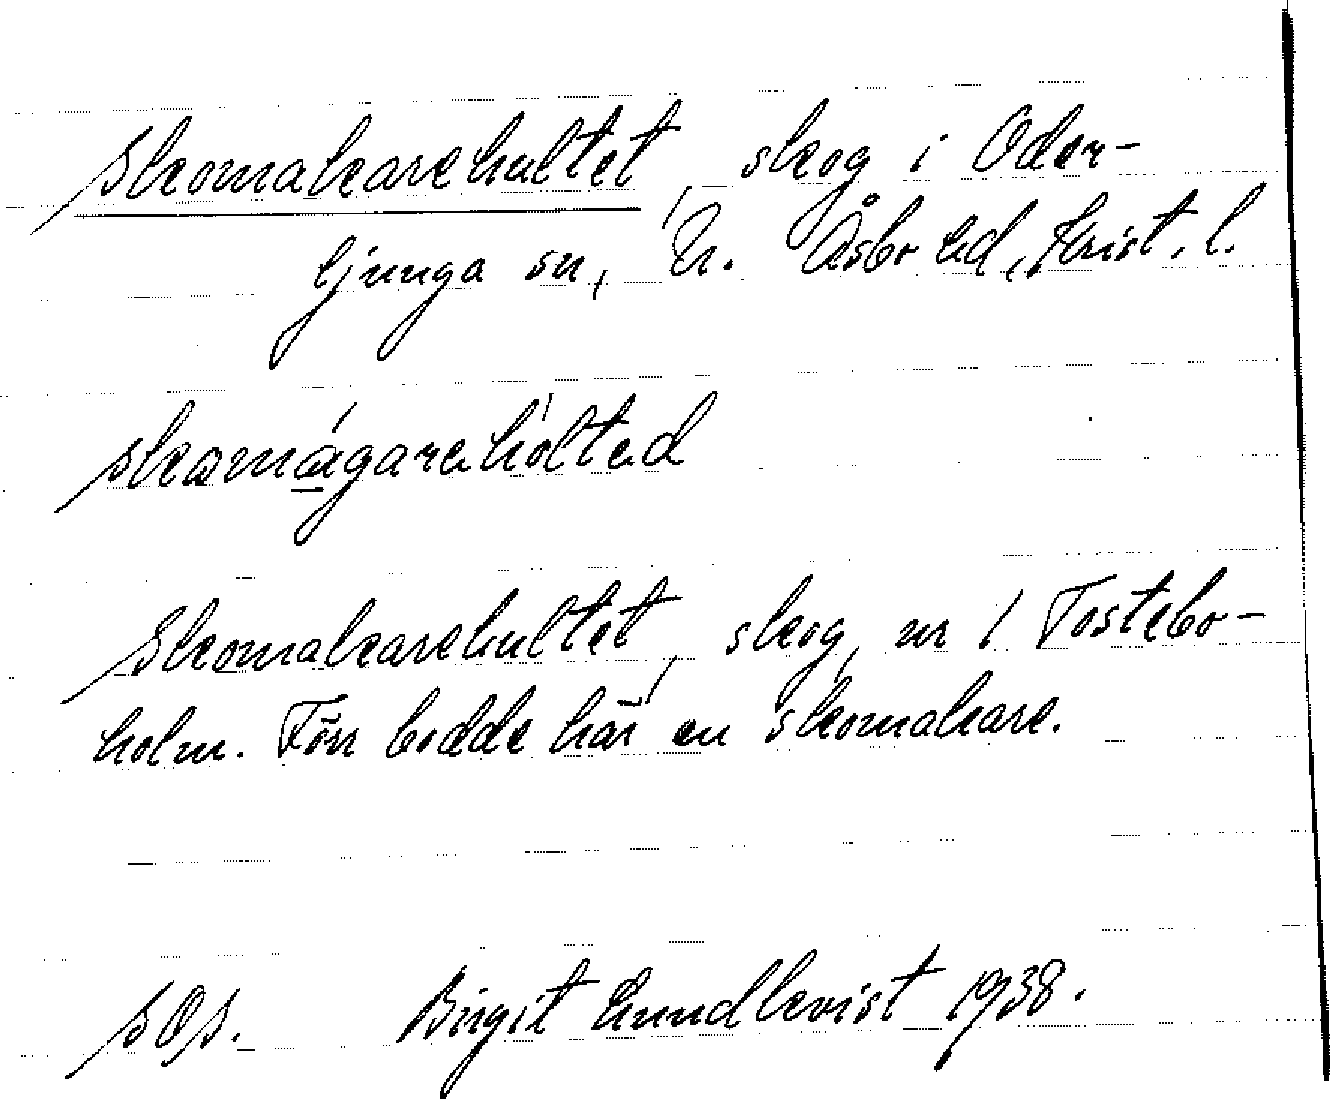 Skomakarehultet, skog i Oder-
ljunga sn, N. Åsbo hd, Krist. l.
skomágarehólted
Skomakarehultet, skog, nr 1 Tostebo-
holm. Förr bodde här en skomakare.
SOS. Birgit Lundkvist 1938.